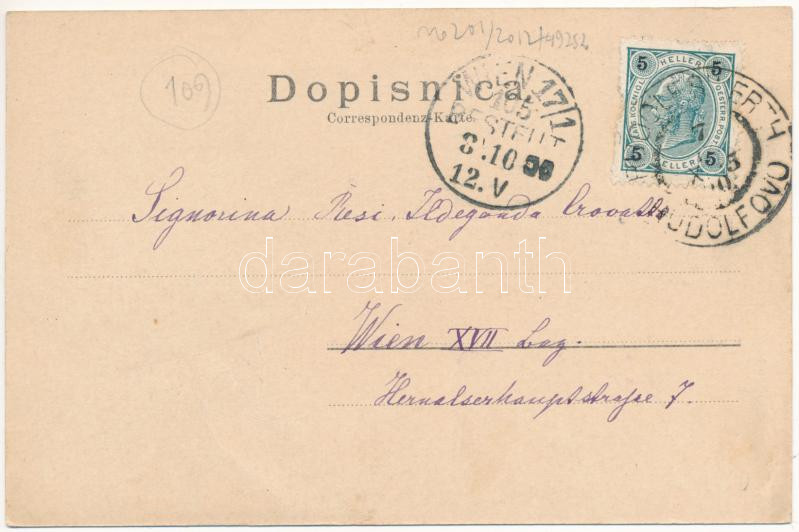 no201/2012/49252
109
Dopisnica.
Correspondenz-Karte.
WIEN 17/1
BESTELLT
8.10
12.V
5 HELLER 5
KAIS. KOENIGL. OESTERR. POST
5 HELLER 5
RUDOLFSWERTH
RUDOLFOVO
Signorina Resi. Ildegonda Crovatto
darabanth
Wien XVII Bez.
Hernalserhauptstrasse 7.